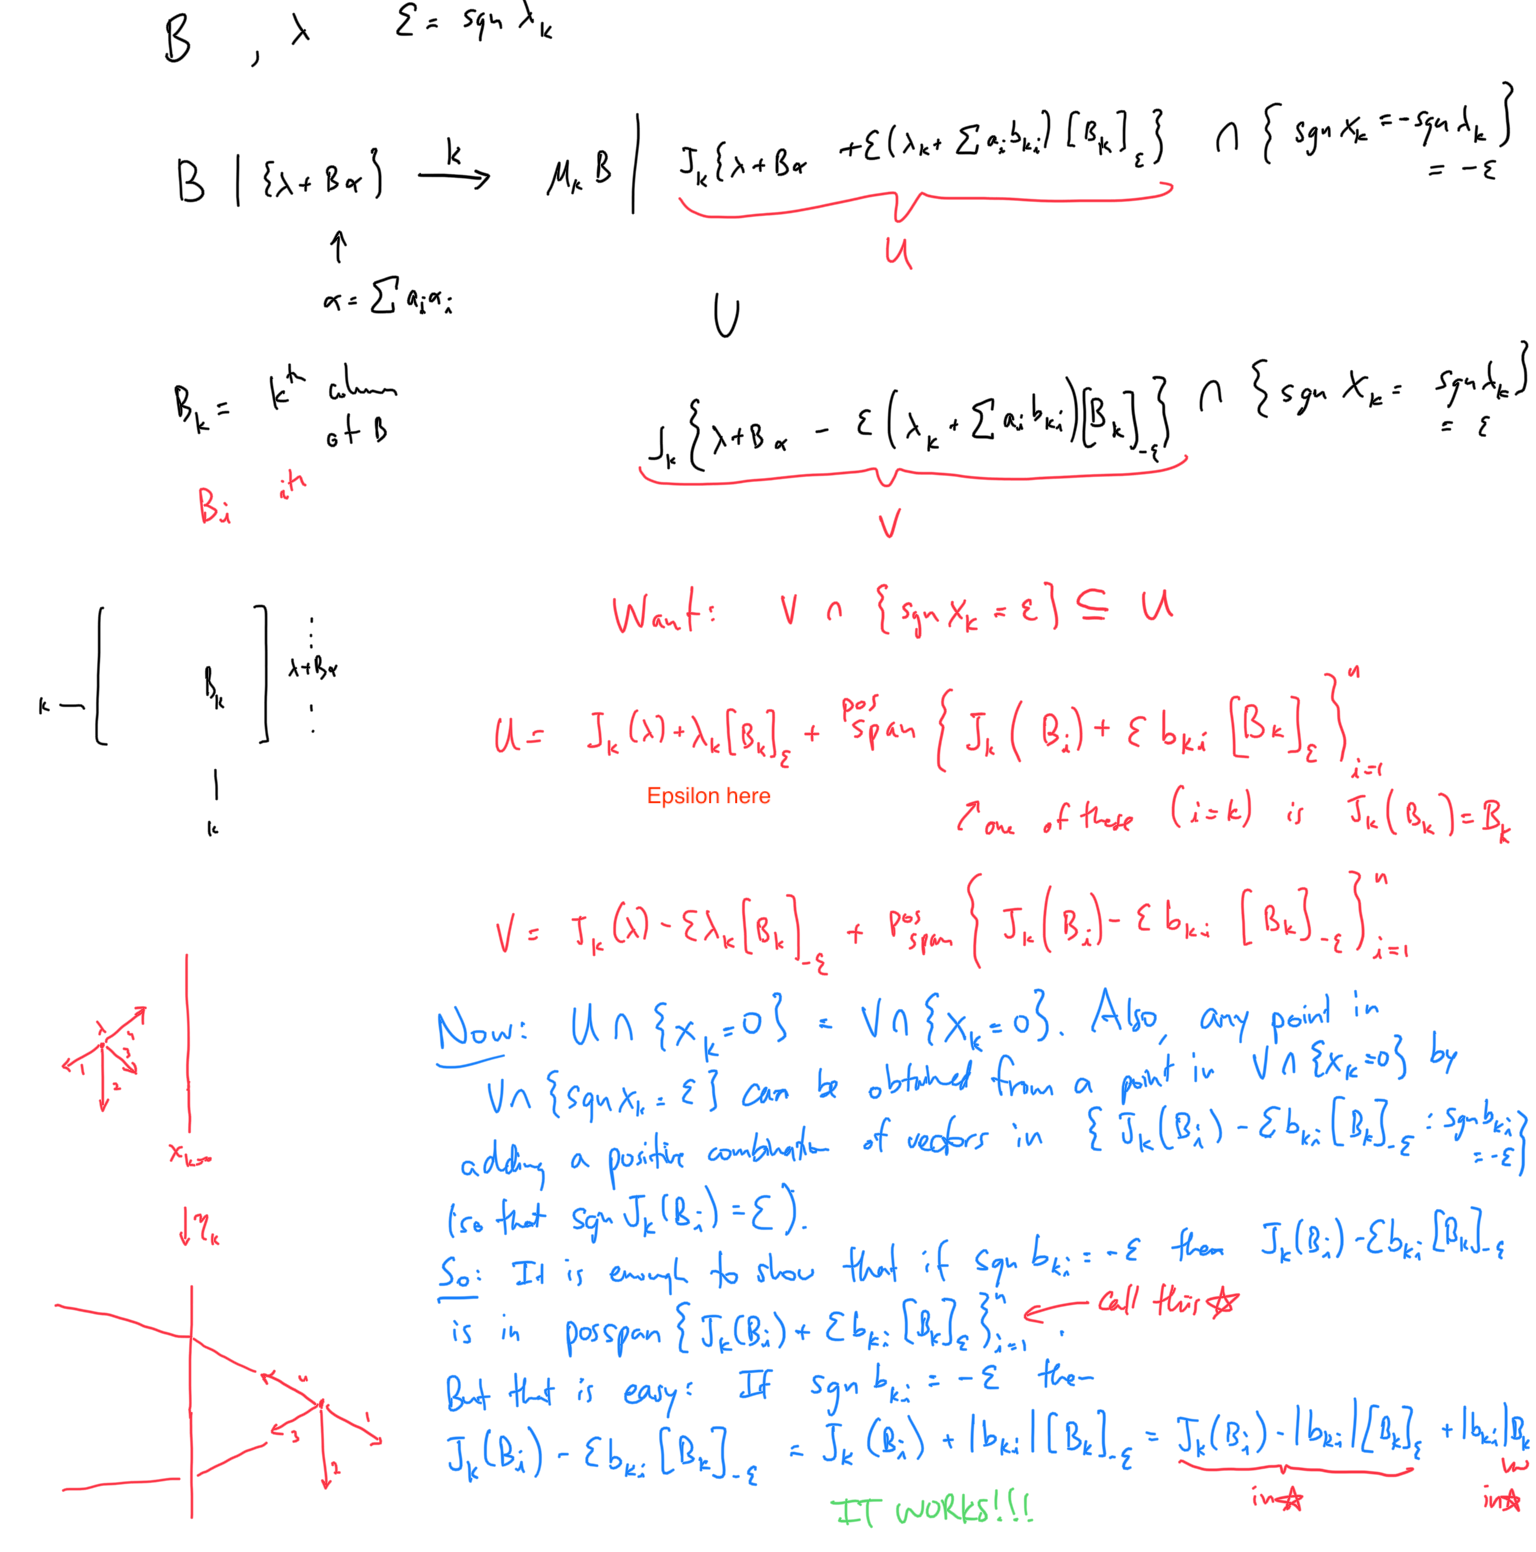 B , λ ε = sgn λ_k
B | {λ + Bα} →^k μ_k B | J_k {λ + Bα + ε(λ_k + Σ a_i b_ki) [B_k]_ε} ∩ {sgn x_k = -sgn λ_k}
= -ε
U
↑
α = Σ a_i α_i
∪
B_k = kth column
of B
J_k {λ + Bα - ε(λ_k + Σ a_i b_ki) [B_k]_-ε} ∩ {sgn x_k = sgn λ_k}
= ε
B_i ith
V
Want: V ∩ {sgn x_k = ε} ⊆ U
k — [ B_k ] ⋮ λ + Bα ⋮
|
k
U = J_k(λ) + λ_k [B_k]_ε + pos span {J_k(B_i) + ε b_ki [B_k]_ε}^n_{i=1}
Epsilon here
↗ one of these (i = k) is J_k(B_k) = B_k
V = J_k(λ) - ελ_k [B_k]_-ε + pos span {J_k(B_i) - ε b_ki [B_k]_-ε}^n_{i=1}
λ 1 2 3 4
x_k=0
↓ η_k
4 1 3 2
Now: U ∩ {x_k = 0} = V ∩ {x_k = 0}. Also, any point in
V ∩ {sgn x_k = ε} can be obtained from a point in V ∩ {x_k = 0} by
adding a positive combination of vectors in {J_k(B_i) - ε b_ki [B_k]_-ε : sgn b_ki = -ε}
(so that sgn J_k(B_i) = ε).
So: It is enough to show that if sgn b_ki = -ε then J_k(B_i) - ε b_ki [B_k]_-ε
is in posspan {J_k(B_i) + ε b_ki [B_k]_ε}^n_{i=1} . ← call this ☆
But that is easy: If sgn b_ki = -ε then
J_k(B_i) - ε b_ki [B_k]_-ε = J_k(B_i) + |b_ki| [B_k]_-ε = J_k(B_i) - |b_ki| [B_k]_ε + |b_ki| B_k
in ☆ in ☆
IT WORKS!!!